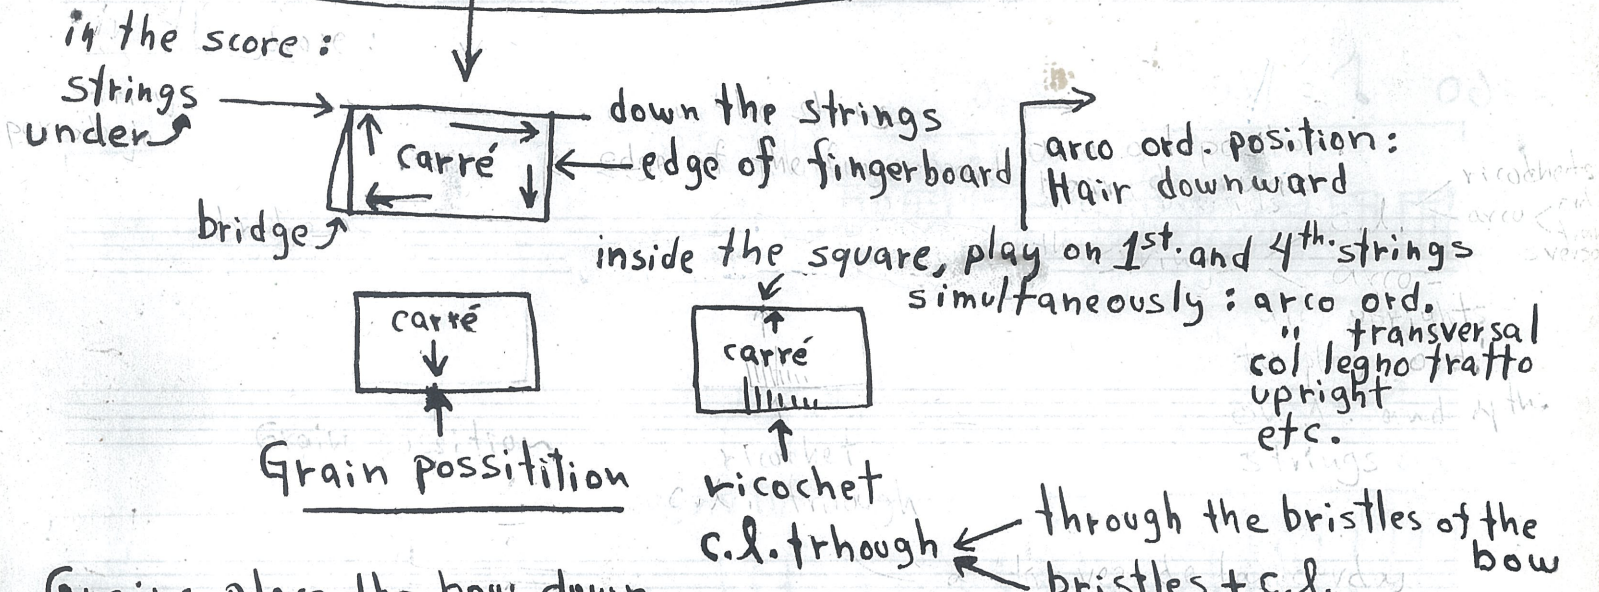 in the score :
strings
under
down the strings
carré
edge of fingerboard
bridge
arco ord. position :
Hair downward
inside the square, play on 1st. and 4th. strings
simultaneously : arco ord.
" transversal
col legno tratto
upright
etc.
carré
Grain possitition
carré
ricochet
c.l. trhough
through the bristles of the
bow
bristles + c.l.
the bow down